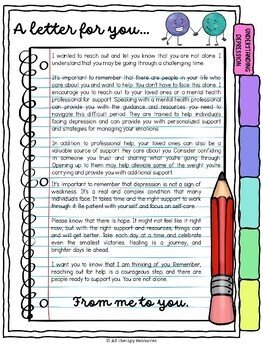 A letter for you...
UNDERSTANDING
DEPRESSION
I wanted to reach out and let you know that you are not alone. I
understand that you may be going through a challenging time.
It's important to remember that there are people in your life who
care about you and want to help. You don't have to face this alone. I
encourage you to reach out to your loved ones or a mental health
professional for support. Speaking with a mental health professional
can provide you with the guidance and resources you need to
navigate this difficult period. They are trained to help individuals
facing depression and can provide you with personalized support
and strategies for managing your emotions.
In addition to professional help, your loved ones can also be a
valuable source of support. They care about you. Consider confiding
in someone you trust and sharing what you're going through.
Opening up to them may help alleviate some of the weight you're
carrying and provide you with additional support.
It's important to remember that depression is not a sign of
weakness. It's a real and complex condition that many
individuals face. It takes time and the right support to work
through it. Be patient with yourself and focus on self-care.
Please know that there is hope. It might not feel like it right
now, but with the right support and resources, things can
and will get better. Take each day at a time and celebrate
even the smallest victories. Healing is a journey, and
brighter days lie ahead.
I want you to know that I am thinking of you. Remember,
reaching out for help is a courageous step, and there are
people ready to support you. You are not alone.
From me to you.
© All Therapy Resources